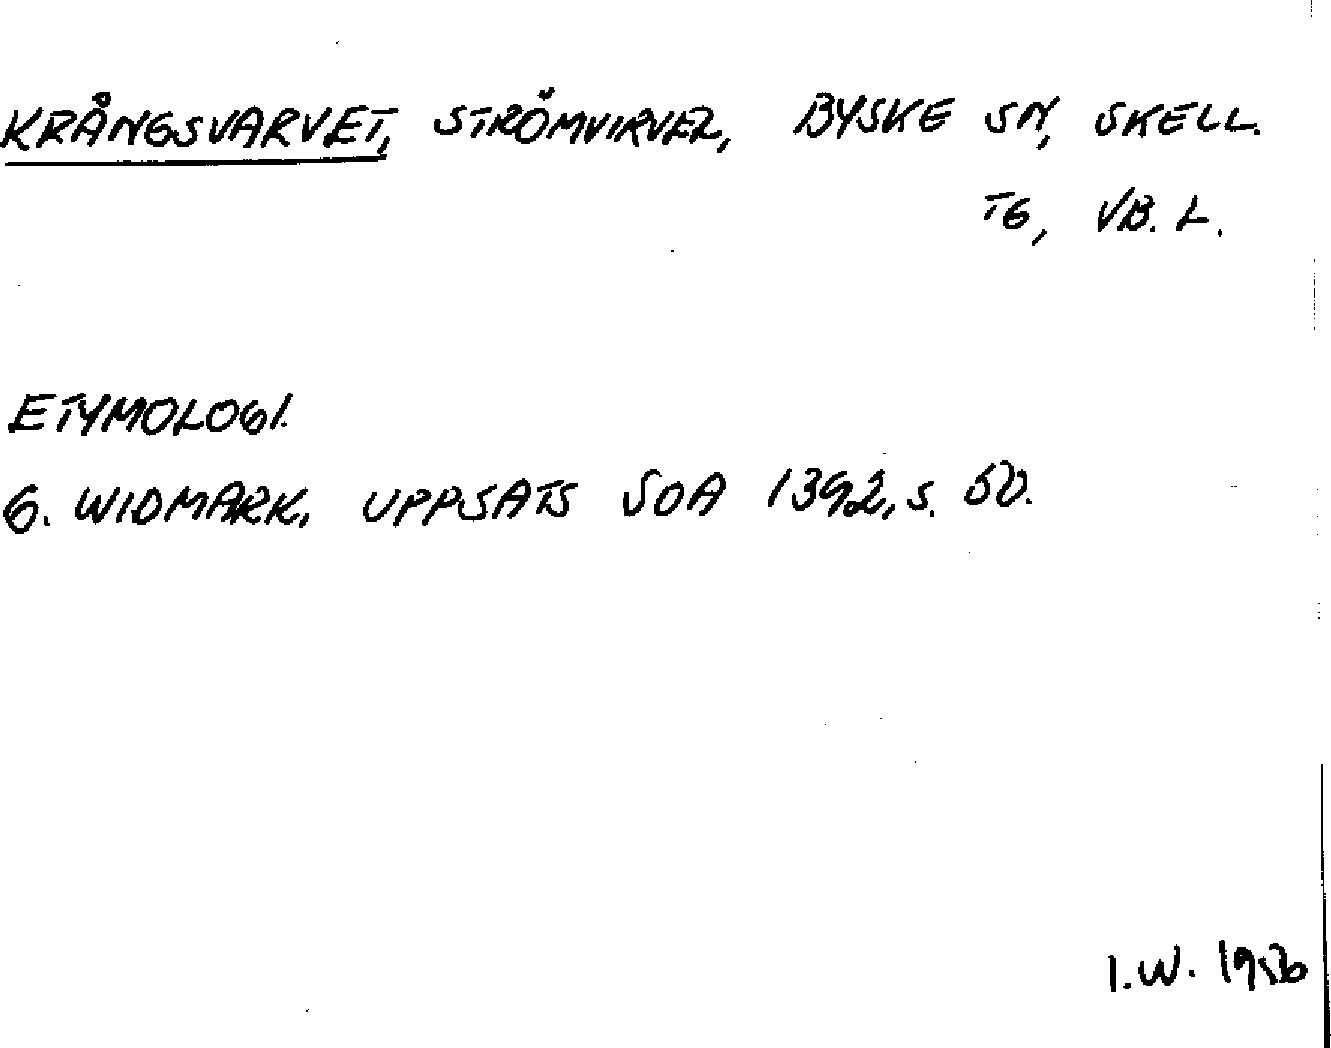 KRÅNGSVARVET, STRÖMVIRVEL, BYSKE SN, SKELL.
TG, VB. L.
ETYMOLOGI.
G. WIDMARK, UPPSATS SOA 1392, S. 50.
I.W. 1956